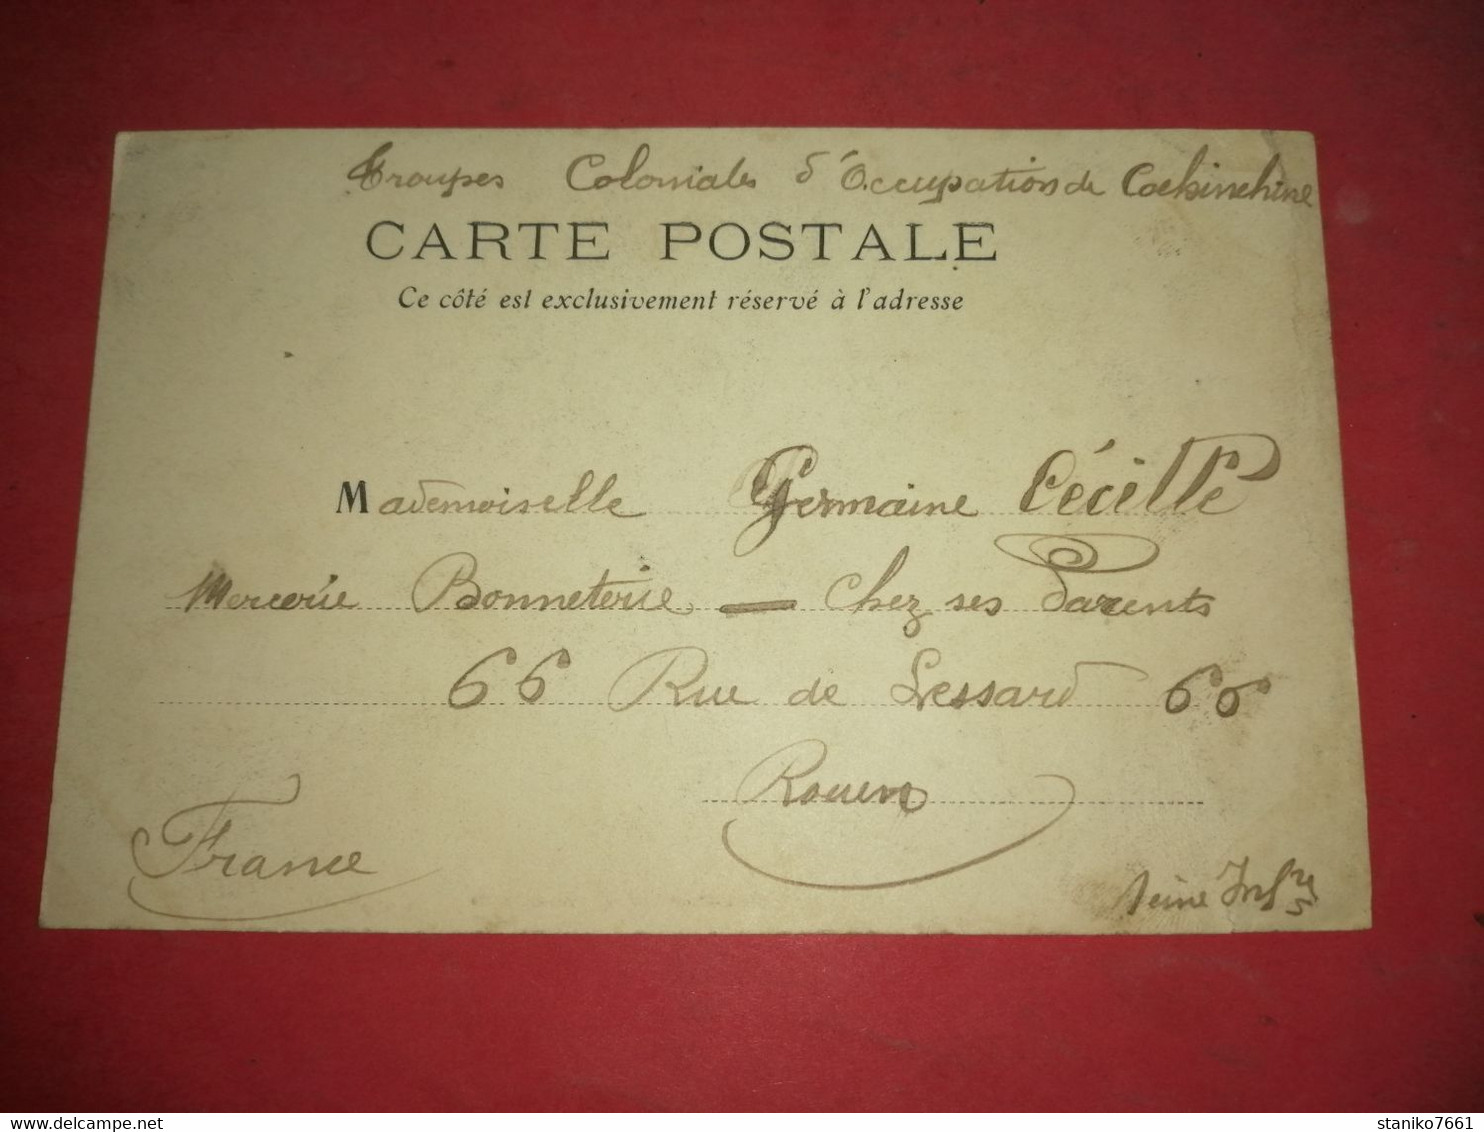 Troupes Coloniales d'Occupation de Cochinchine
CARTE POSTALE
Ce côté est exclusivement réservé à l'adresse
Mademoiselle Germaine Cécille
Mercerie Bonneterie — Chez ses Parents
66 Rue de Lessard 66
Rouen
France
Seine Infre
delcampe.net
staniko7661